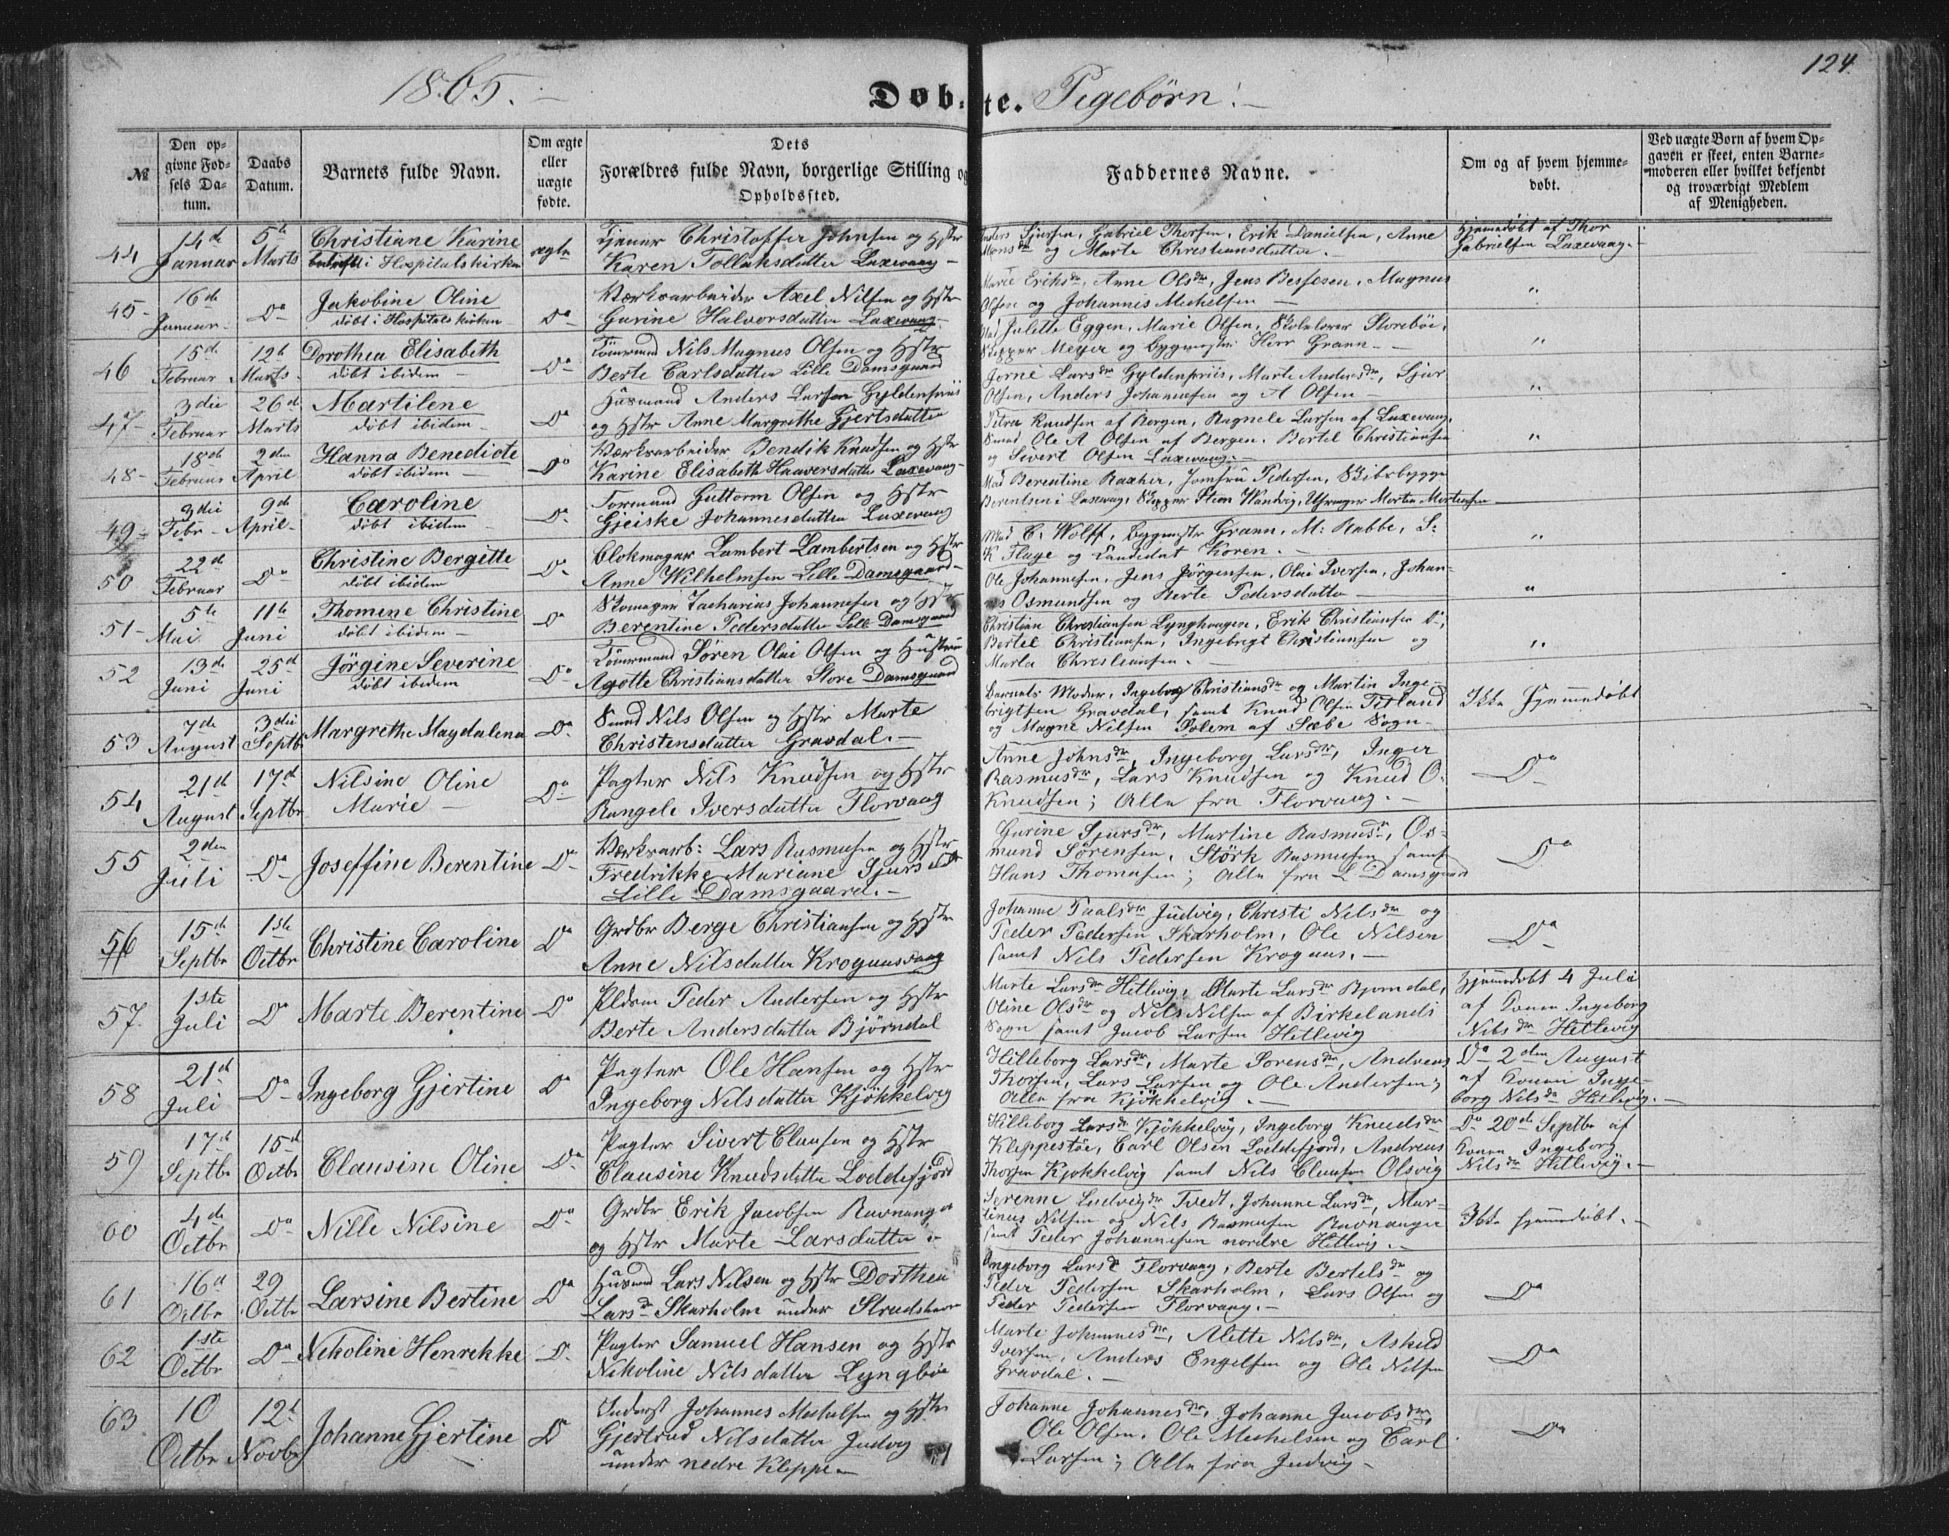 124.
1865. Døbte. Pigebørn.
№ | Den opgivne Fødsels Datum. | Daabs Datum. | Barnets fulde Navn. | Om ægte eller uægte fødte. | Dets Forældres fulde Navn, borgerlige Stilling og Opholdssted. | Faddernes Navne. | Om og af hvem hjemmedøbt. | Ved uægte Børn af hvem Opgaven er skeet, enten Barnemoderen eller hvilket bekjendt og troværdigt Medlem af Menigheden.
44 14de Januar 5te Marts Christiane Karine i Hospitalskirken ægte
Christoffer Johnsen og Hstr
Karen Tollaksdatter Laxevaag
Gabriel Thorsen, Erik Danielsen, Anne
og Marte Christiansdatter.
Hjemmedøbt af Thor
Gabrielsen Laxevaag.
45 16de Januar Do Jakobine Oline døbt i Hospitalskirken Do
Værksarbeider Axel Nilsen og Hstr
Gurine Halvorsdatter Laxevaag
Marie Eriksdr, Anne Olsdr, Jens Magnus
Olsen og Johannis Michelsen
"
46 15de Februar 12te Marts Dorothea Elisabeth døbt ibidem Do
Tømrmand Nils Magnus Olsen og Hstr
Berte Carlsdatter Lille Damsgaard
Mad Julette Eggen, Marie Olsen, Skolelærer Storebøe,
Skipper Meyer og Bygmester Herr Grann.
"
47 3die Februar 26de Marts Martilene døbt ibidem Do
Huusmand Anders Larsen Gyldenpriis
og Hstr Anne Margrethe Gjertsdatter
Larsdr Gyldenpriis, Marte Andersdr, Sjur
Olsen, Anders Johannesen og A Olsen
"
48 18de Februar 2den April Hanna Benedicte døbt ibidem Do
Værksarbeider Bendik Knudsen og Hstr
Karine Elisabeth Haaversdatter Laxevaag
Petra Knudsen af Bergen, Larsen af Laxevaag,
Smed Ole A Olsen af Bergen, Bertel Christiansen
og Sivert Olsen Laxevaag.
"
49 3die Febr 9de April Caroline døbt ibidem Do
Tormand Guttorm Olsen og Hstr
Johannesdatter Laxevaag
Mad Berentine Jomfru Pedersen, Skibsbygger
Berentsen i Laxevaag, Skipper Morten Mortensen
50 22de Februar Do Christine Bergitte døbt ibidem Do
Blokmager Lambert Lambertsen og Hstr
Anne Wilhelmsen Lille Damsgaard
Mad C. Wolff, Bygmester Grann, M: Rabbe, S.
K Flage og Candidat Koren.
"
51 5te Mai 11te Juni Thomine Christine døbt ibidem Do
Skomager Zacharias Johannesen og Hstr
Berentine Pedersdatter Lille Damsgaard
Ole Johannesen, Jens Jørgensen, Olai Iversen, Johannes
Osmundsen og Berte Pedersdatter
"
52 13de Juni 25de Juni Jørgine Severine døbt ibidem Do
Tømrmand Søren Olai Olsen og Hustru
Agotte Christiansdatter Store Damsgaard
Christian Christiansen Lynghaugen, Erik Christiansen
Bertel Christiansen, Ingebrigt Christiansen og
Marta Christiansen.
"
53 7de August 3die Septbr Margrethe Magdalena Do
Smed Nils Olsen og Hstr Marte
Christensdatter Gravdal.
Barnets Moder, Ingeborg Christiansdr og Martin Ingebrigtsen
Gravdal, samt Knud Olsen Titland
og Magne Nilsen af Sæbe Sogn
Ikke Hjemmedøbt
54 21de August 17de Septbr Nilsine Oline Marie Do
Pagter Nils Knudsen og Hstr
Rangele Iversdatter Florvaag
Anne Johnsdr, Ingeborg Larsdr, Inger
Rasmusdr, Lars Knudsen og Knud O.
Knudsen; Alle fra Florvaag.
Do
55 2den Juli Do Joseffine Berentine Do
Værksarb: Lars Rasmusen og Hstr
Fredrikke Mariane Sjursdatter
Lille Damsgaard.
Gurine Sjursdr, Martine Rasmusdr, Osmund
Sørensen, Størk Rasmusen samt
Hans Thomasen; Alle fra L Damsgaard
Do
56 15de Septbr 1ste Octbr Christine Caroline Do
Grdbr Berge Christiansen og Hstr
Anne Nilsdatter Krogaasvaag
Johanne Paalsdr Judvig, Christi Nilsdr og
Peder Pedersen Skarholm, Ole Nilsen
samt Nils Pedersen Krogaas.
Do
57 1ste Juli Do Marte Berentine Do
Pldsm Peder Andersen og Hstr
Berte Andersdatter Bjørndal
Marte Larsdr Hetlevig, Marte Larsdr Bjørndal,
Oline Olsdr og Nils Nilsen af Birkelands
Sogn samt Jacob Larsen Hetlevig
Hjemmedøbt 4 Juli
af Konen Ingeborg
Nilsdr Hetlevig
58 21de Juli Do Ingeborg Gjertine Do
Pagter Ole Hansen og Hstr
Ingeborg Nilsdatter Kjøkkelvig
Hilleborg Larsdr, Marte Sørensdr, Andreas
Thorsen, Lars Larsen og Ole Andersen;
Alle fra Kjøkkelvig.
Do 2den August
af Konen Ingeborg
Nilsdr Hetlevig.
59 17de Septbr 15de Octbr Clausine Oline Do
Pagter Sivert Clausen og Hstr
Clausine Knudsdatter Loddefjord
Hilleborg Larsdr Kjøkkelvig, Ingeborg Knudsdr
Kleppestøe, Carl Olsen Loddefjord, Andreas
Thorsen Kjøkkelvig samt Nils Clausen Olsvig
Do 20de Septbr af
Konen Ingeborg
Nilsdr Hetlevig.
60 4de Octbr Do Nille Nilsine Do
Grdbr Erik Jacobsen Ravnanger
og Hstr Marte Larsdatter
Serenne Ludvigsdr Tvedt, Johanne Larsdr, Martinus
Nilsen og Nils Rasmusen Ravnanger
samt Peder Johannesen nordre Hetlevig.
Ikke hjemmedøbt.
61 16de Octbr 29 Octbr Larsine Bertine Do
Huusmd Lars Nilsen og Hstr Dorthea
Larsdr Skarholm under Strudshavn
Ingeborg Larsdr Florvaag, Berte Bertelsdr og
Peder Pedersen Skarholm, Lars Olsen og
Peder Pedersen Florvaag.
Do
62 1ste Octbr Do Nikoline Henrekke Do
Pagter Samuel Hansen og Hstr
Nikoline Nilsdatter Lyngbøe
Marte Johannesdr, Alette Nilsdr, Askild
Iversen, Anders Engelsen og Ole Nilsen
Gravdal.
Do
63 10 Octbr 12te Novbr Johanne Gjertine Do
Inderst Johannes Michelsen og Hstr
Gjertrud Nilsdatter Judvig
under nedre Kleppe
Johanne Johannesdr, Johanne Jacobsdr,
Ole Olsen, Ole Michelsen og Carl
Larsen; Alle fra Judvig
Do